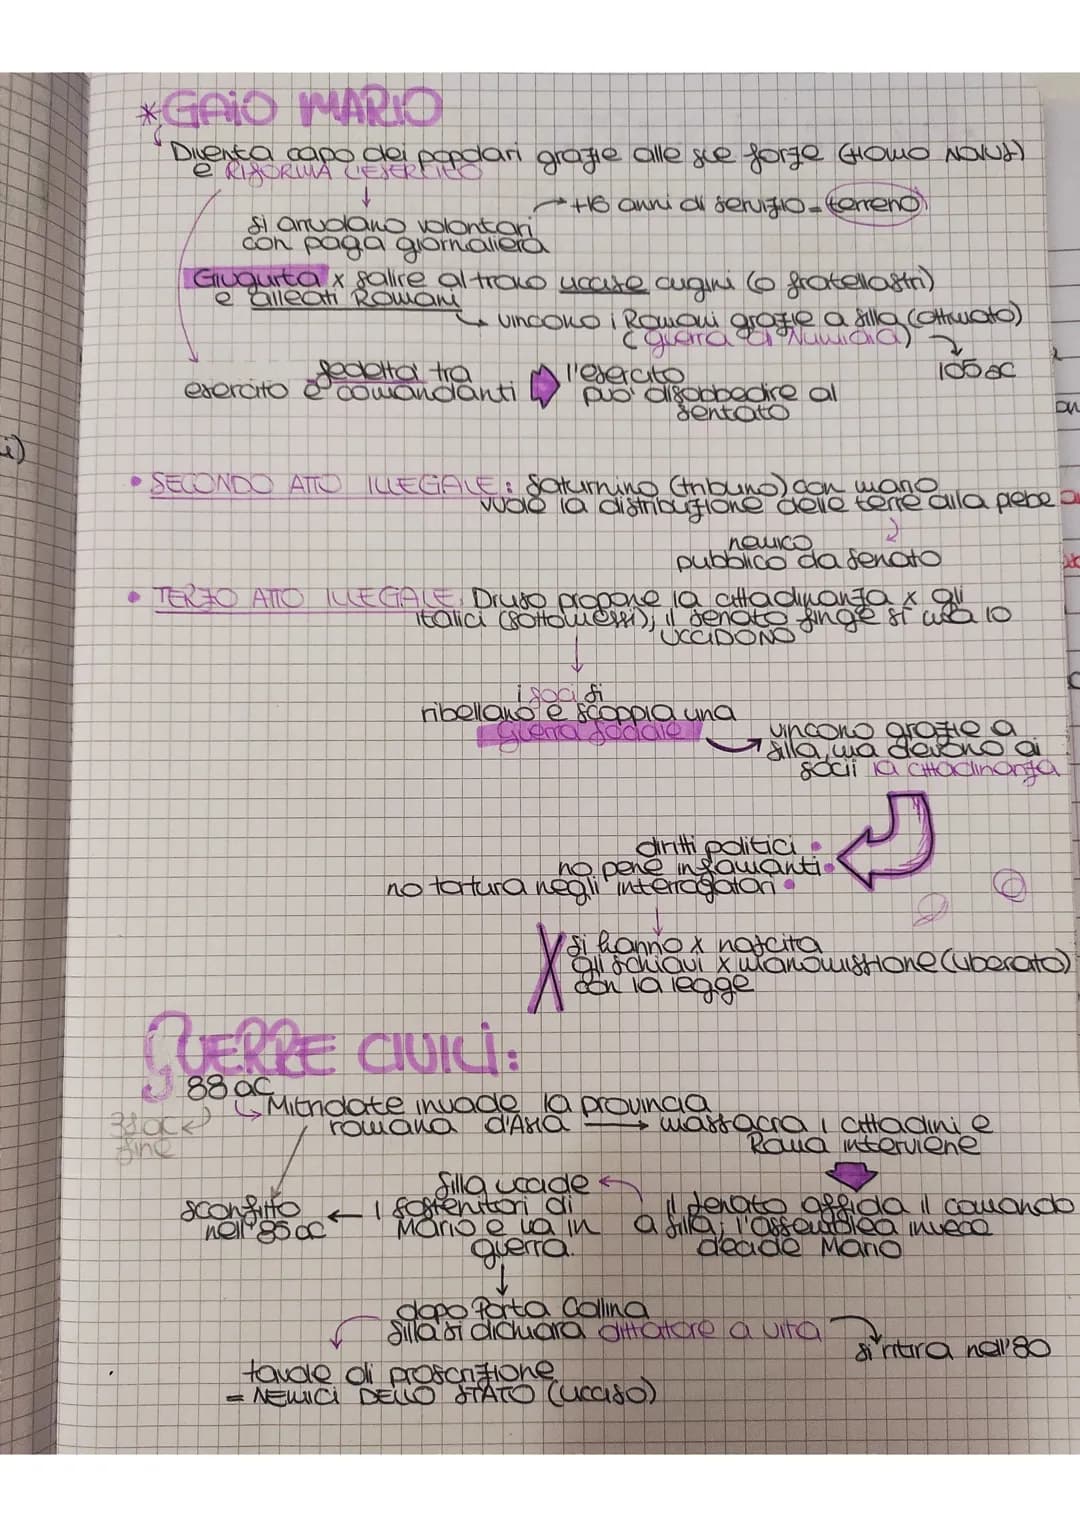 *GAIO MARIO
Diventa capo dei popolari grazie alle sue forze (HOMO NOVUS)
e RIFORMA L'ESERCITO
→ +16 anni di servizio = terreno
si arruolano volontari
con paga giornaliera
Giugurta x salire al trono uccise cugini (o fratellastri)
e alleati Romani
→ vincono i Romani grazie a Silla (ottimato)
(guerra di Numidia)
105 aC
fedeltà tra
esercito e comandanti
l'esercito
può disobbedire al
sentato
• SECONDO ATTO ILLEGALE: Saturnino (tribuno) con mario
vuole la distribuzione delle terre alla plebe
nemico
pubblico da senato
• TERZO ATTO ILLEGALE: Druso propone la cittadinanza x gli
italici (sottomessi); il senato finge sì ma lo
UCCIDONO
i soci si
ribellano e scoppia una
guerra sociale
vincono grazie a
silla, ma devono ai
socii la cittadinanza
diritti politici •
no pene infamanti •
no tortura negli interrogatori •
si hanno x nascita
gli schiavi x manomissione (liberato)
con la legge
GUERRE CIVILI:
88 aC
Mitridate invade la provincia
romana d'Asia → massacra i cittadini e
Roma interviene
38 ac
fine
Silla uccide
i sostenitori di
Mario e va in
guerra.
sconfitto
nell'85 ac
il senato affida il comando
a silla; l'assemblea invece
decide Mario
dopo Porta Collina
silla si dichiara dittatore a vita
si ritira nell'80
tavole di proscrizione
= NEMICI DELLO STATO (ucciso)